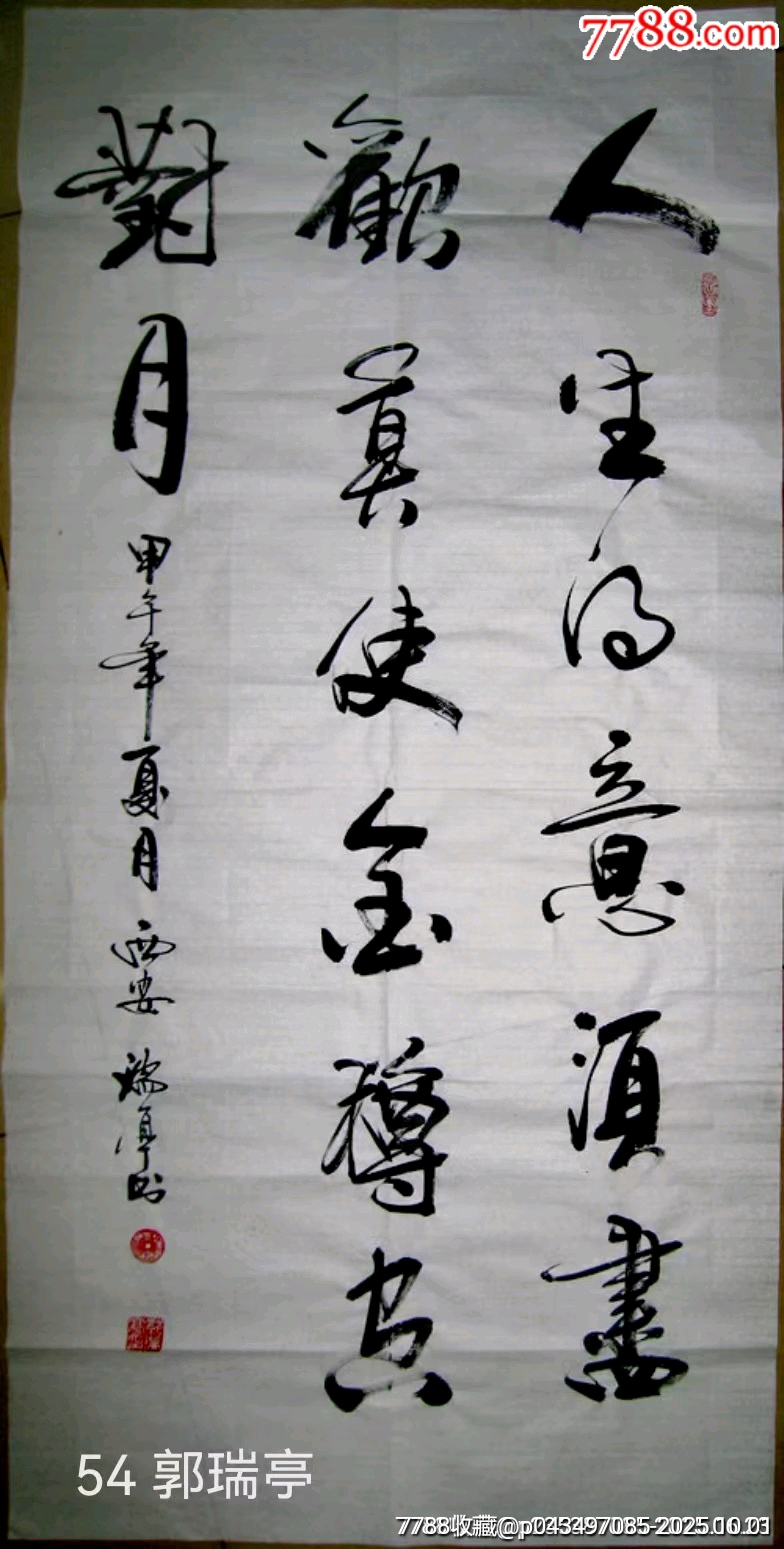 7788.com
人生得意須盡
歡莫使金樽空
對月
甲午年夏月西安瑞亭书
54 郭瑞亭
7788收藏